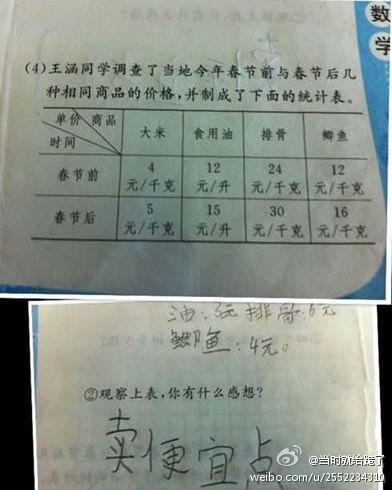 数
学
(4)王涵同学调查了当地今年春节前与春节后几
种相同商品的价格,并制成了下面的统计表。
单价 商品 时间 大米 食用油 排骨 鲫鱼
春节前 4元/千克 12元/升 24元/千克 12元/千克
春节后 5元/千克 15元/升 30元/千克 16元/千克
油:3元 排骨:6元
鲫鱼:4元。
②观察上表,你有什么感想?
卖便宜点
@当时就给跪了
weibo.com/u/2552234310